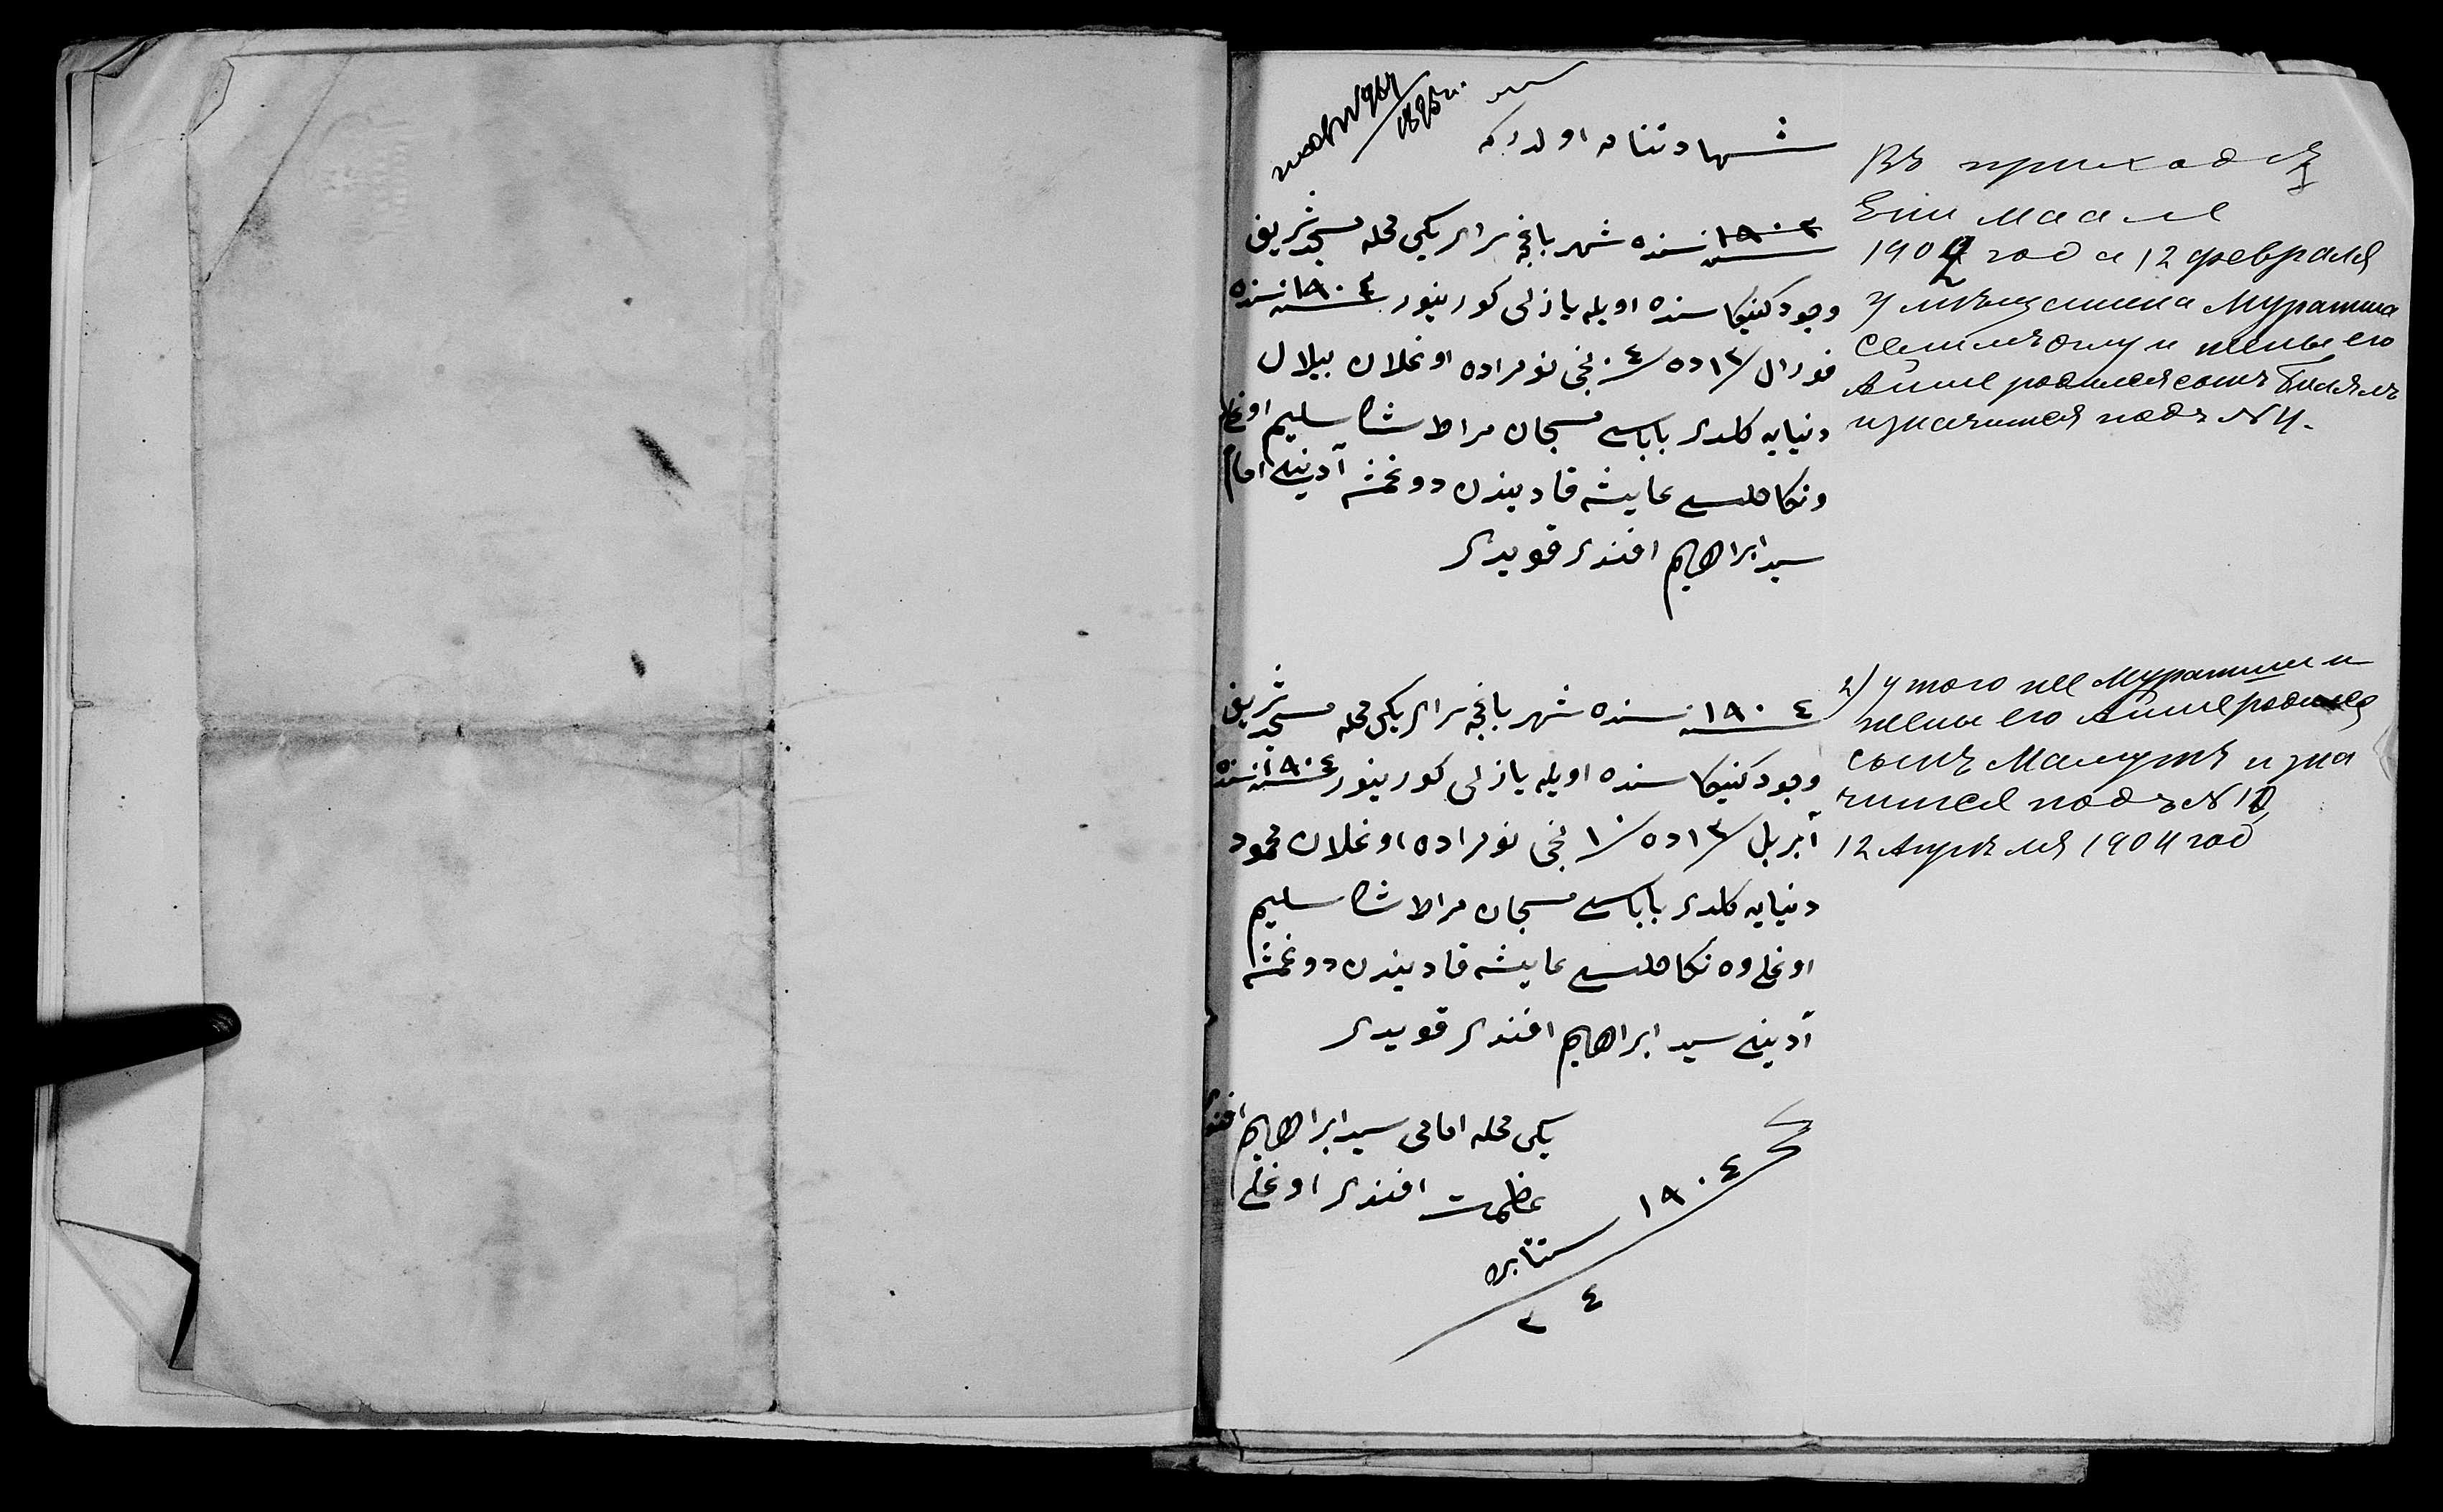 شهادتنامه اولدركه
١٩٠٢ نسنده شهر باغچه سراى يكى محله مسجد شريف
وجود كنيكاسنده اويله يازلى كورينور ١٩٠٢ نسنده
فورال ١٢ده ٤نجى نومراده اوغلان بيلال
دنيايه كلدى باباسى مسجان مراطشا سليم اوغلى
ونكاحلسى عايشه قاديندن دوغمشه آدينى امام
سيد ابراهيم افندى قويدى
١٩٠٤ سنده شهر باغچه سراى يكى محله مسجد شريف
وجود كنيكاسنده اويله يازلى كورينور ١٩٠٤ نسنده
آبريل ١٢ده ١٠نجى نومراده اوغلان محمود
دنيايه كلدى باباسى مسجان مراطشا سليم
اوغلى وه نكاحلسى عايشه قاديندن دوغمشه
آدينى سيد ابراهيم افندى قويدى
يكى محله امامى سيد ابراهيم افندى
عظمت افندى اوغلى
١٩٠٤
سنتابره
٢٤
Въ приходѣ
Ени Маале
1902 года 12 февраля
у мѣщанина Муратша
Селимъ оглу и жены его
Айше родился сынъ Билялъ
и значится подъ № 4.
2) у того же Муратши и
жены его Айше родился
сынъ Мамутъ и зна
чится подъ № 10,
12 Апрѣля 1904 год